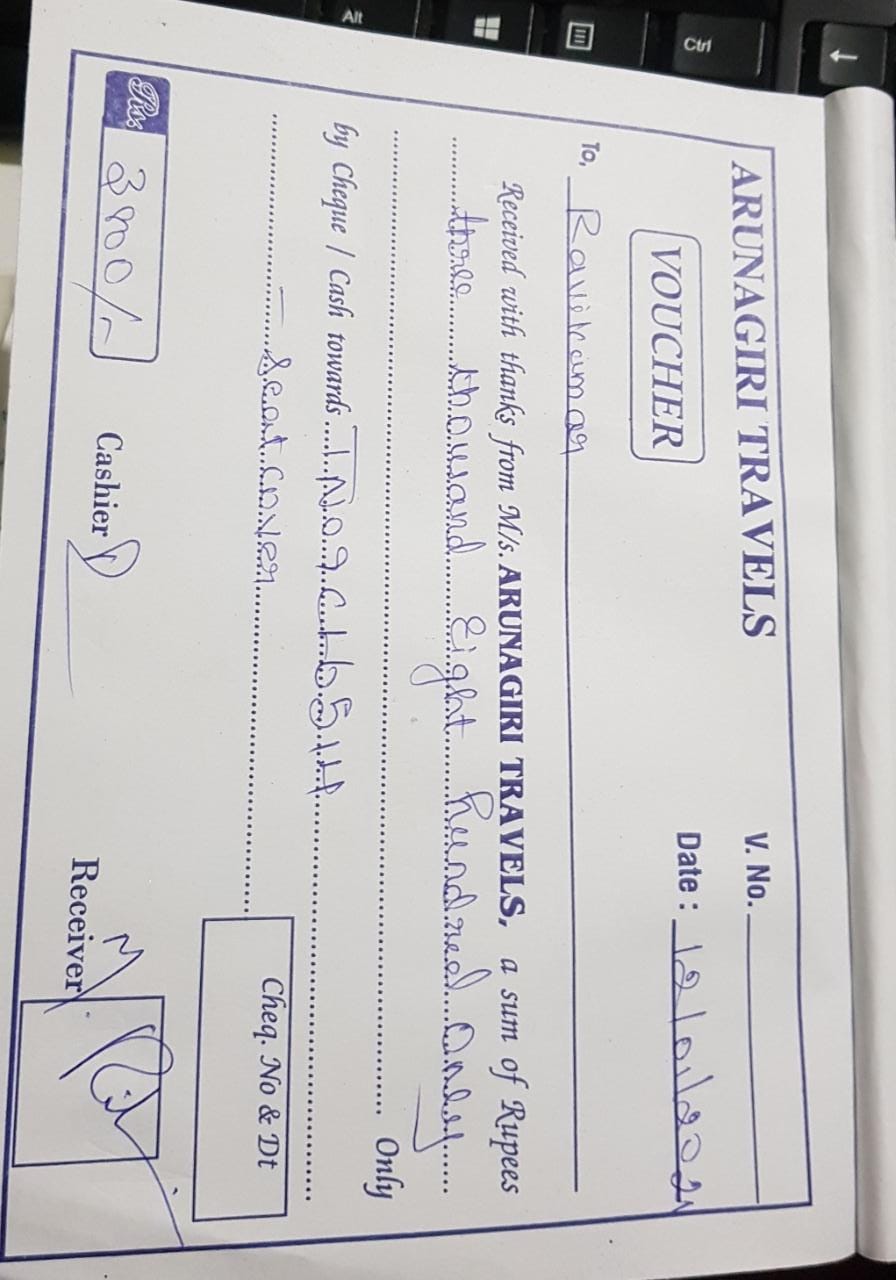 ARUNAGIRI TRAVELS
V. No.
VOUCHER
Date : 12/01/2021
To, Ravikumar
Received with thanks from M/s. ARUNAGIRI TRAVELS, a sum of Rupees
three thousand Eight hundred Only
Only
by Cheque / Cash towards TN09CH6514
- Seat cover
Cheq. No & Dt
Rs.
Cashier
Receiver
Alt
Ctrl